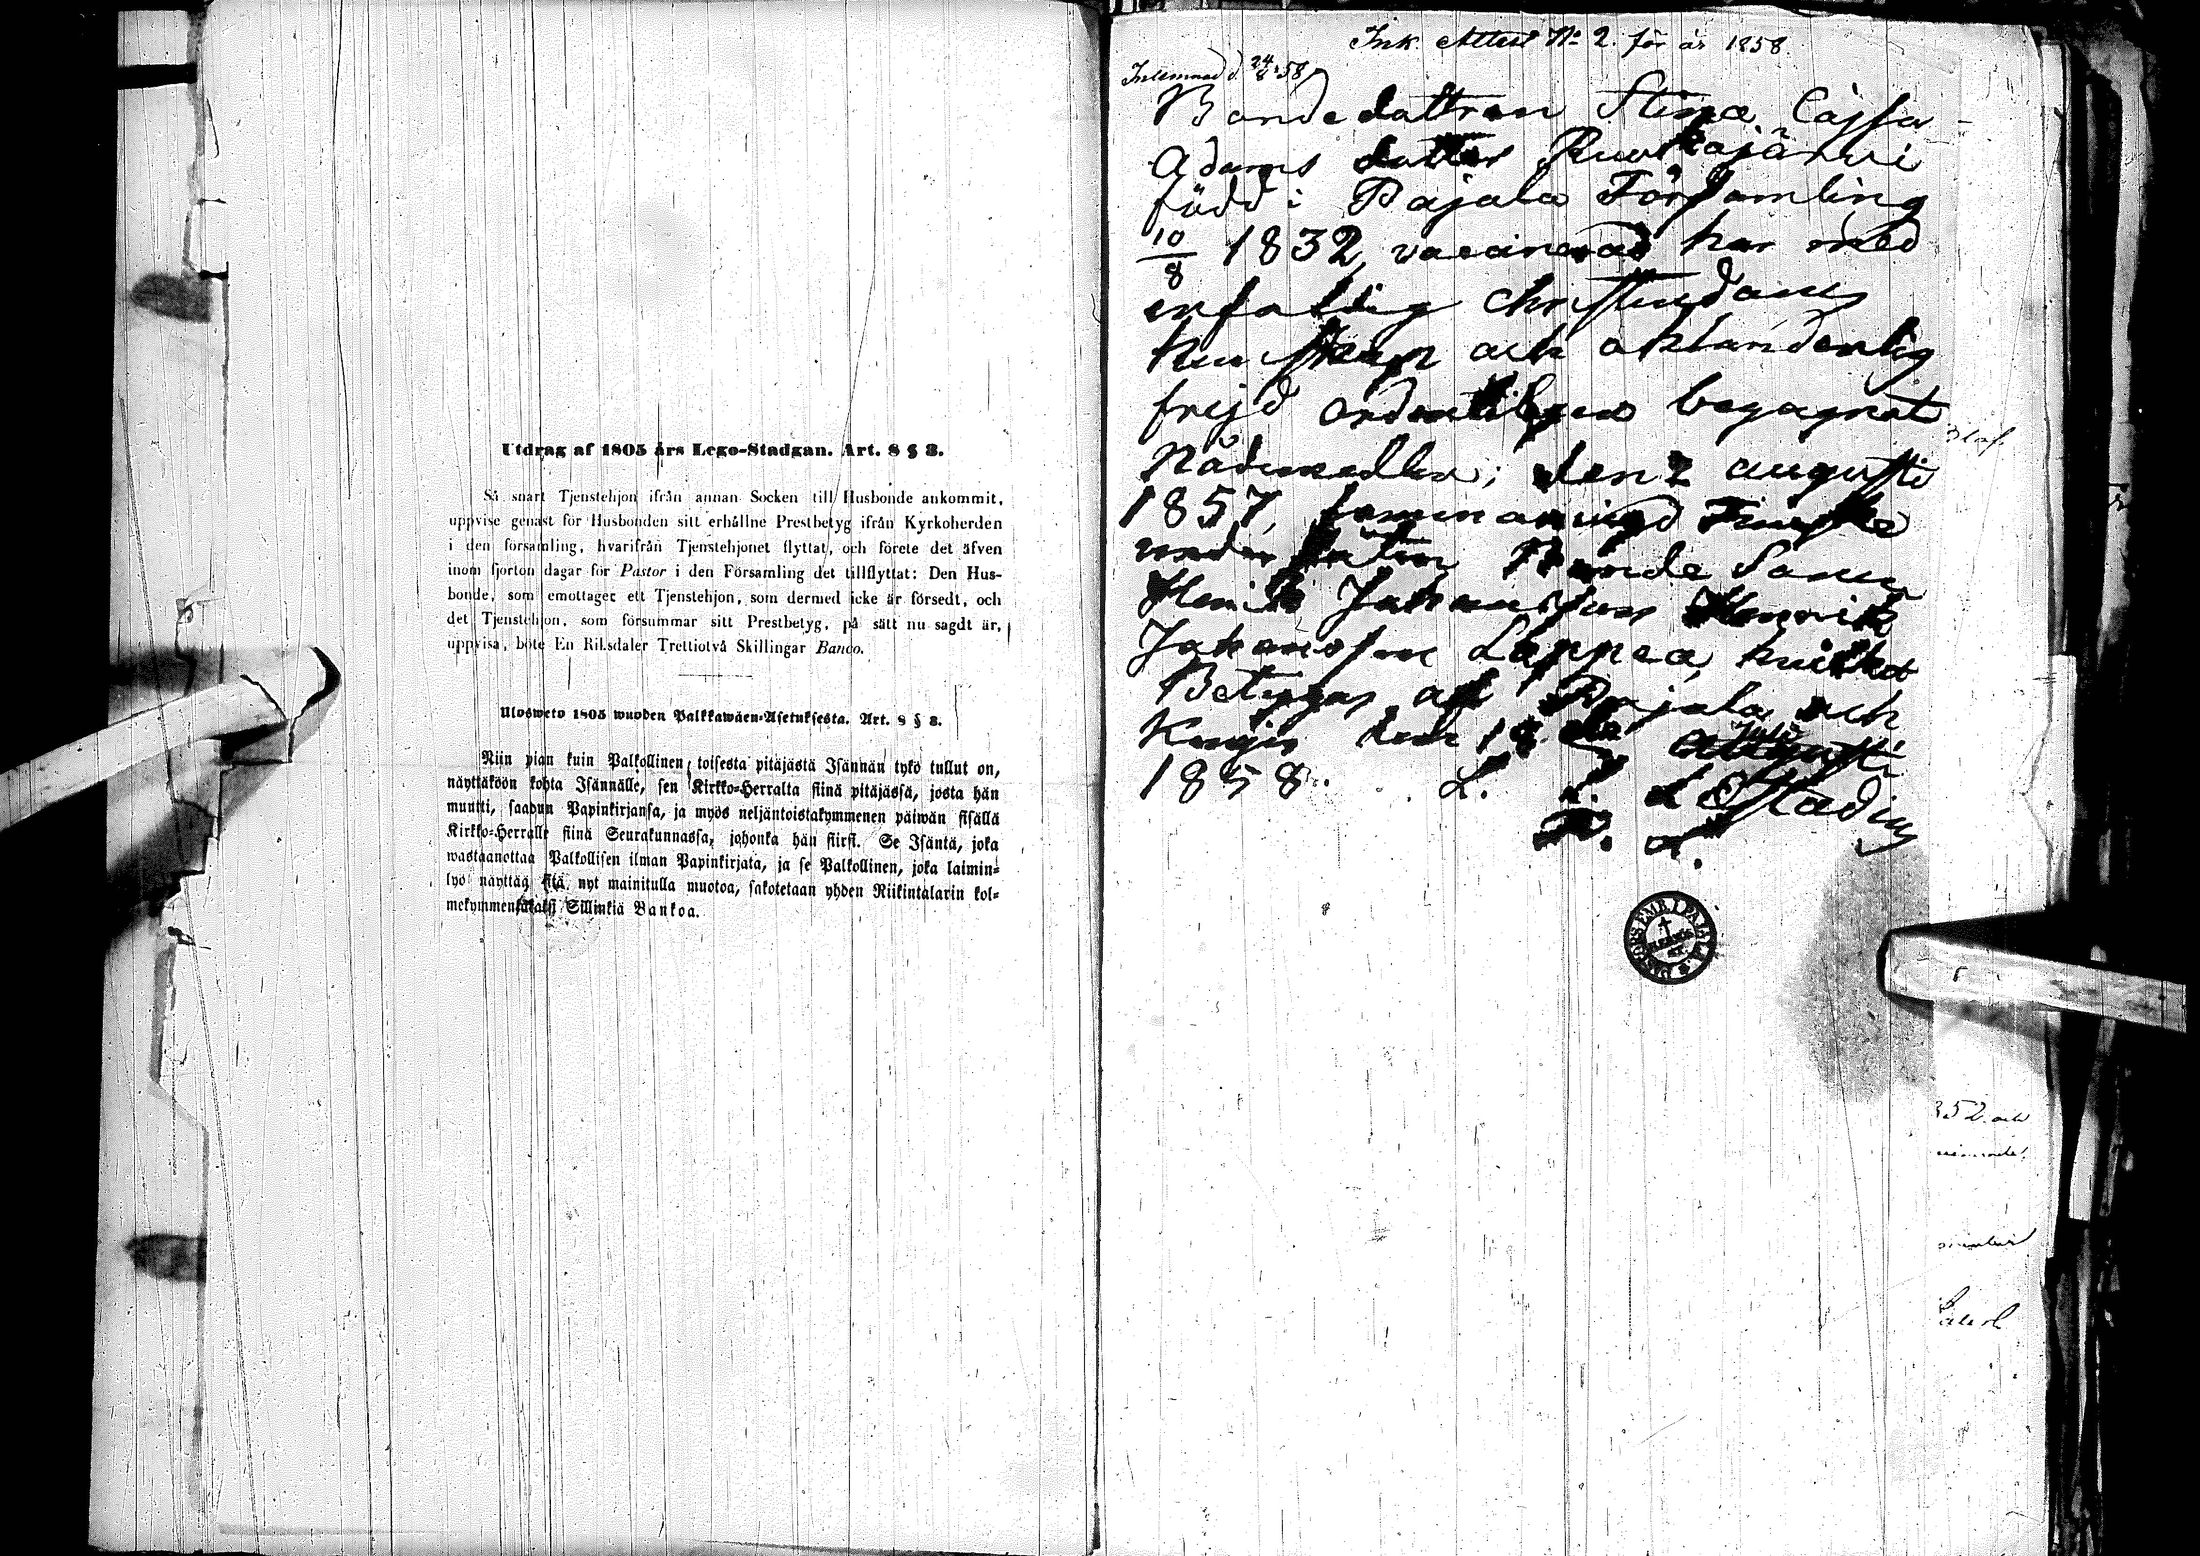 Utdrag af 1805 års Lego-Stadgan. Art. 8 § 3.
Så snart Tjenstehjon ifrån annan Socken till Husbonde ankommit,
uppvise genast för Husbonden sitt erhållne Prestbetyg ifrån Kyrkoherden
i den forsamling, hvarifrån Tjenstehjonet flyttat, och förete det äfven
inom fjorton dagar för Pastor i den Församling det tillflyttat: Den Hus-
bonde, som emottager ett Tjenstehjon, som dermed icke är försedt, och
det Tjenstehjon, som försummar sitt Prestbetyg, på sätt nu sagdt är,
uppvisa, böte En Riksdaler Trettiotvå Skillingar Banco.
Ulosweto 1805 wuoden Palkkawäen-Asetuksesta. Art. 8 § 3.
Niin pian kuin Palkollinen toisesta pitäjästä Isännän tykö tullut on,
näyttäköön kohta Isännälle, sen Kirkko-Herralta siinä pitäjässä, josta hän
muutti, saadun Papinkirjansa, ja myös neljäntoistakymmenen päiwän sisällä
Kirkko-Herralle siinä Seurakunnassa, johonka hän siirsi. Se Isäntä, joka
wastaanottaa Palkollisen ilman Papinkirjata, ja se Palkollinen, joka laimin-
lyö näyttää sitä nyt mainitulla muotoa, sakotetaan yhden Riikintalarin kol-
mekymmentäkaksi Sillinkiä Bankoa.
Ink. Attest No 2. för år 1858.
Inlemnad d. 24/8 58
Bondedottren Stina Cajsa
Adams dotter Ruokojärwi
född i Pajala Församling
10/8 1832, vaccinerad har med
enfaldig Christendoms
kunskap och oklanderlig
frejd ordentligen begagnat
Nådemedlen; den 2 augusti
1857,
under Bonde Sonen
Henrik Johansson Henrik
Johansson Lappea, hvilket
Betygas af Pajala och
Kengis den 18 Julii
1858. L. L. Læstadius
P. L.
PASTORS EMB. I PAJALA